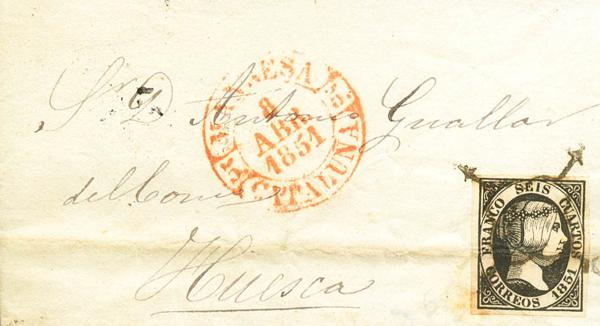 Sr. D. Antonio Guallar
del Comercio
Huesca
MANRESA
8
ABR
1851
CATALUÑA
FRANCO SEIS CUARTOS
CORREOS 1851